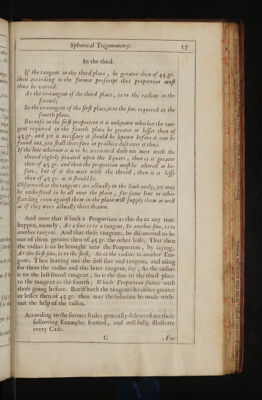 Spherical Trigonometry. 17
In the third.
If the tangent in the third place, be greater then of 45 gr.
then according to the former prescript this proportion must
thus be varied.
As the co-tangent of the third place, is to the radius in the
second;
So the co-tangent of the first place, to the sine required in the
fourth place.
Because in the first proportion it is unknown whether the tan-
gent required in the fourth place be greater or lesser then of
45 gr. and yet it necessary it should be known before it can be
found out, you shall therefore in practice discover it thus.
If the line whereon it is to be accounted doth not meet with the
thread rightly situated upon the Square, then is it greater
then of 45 gr. and then the proportion must be altered as be-
fore, but if it do meet with the thread, then is it lesse
then of 45 gr. as it should be.
Observe that the tangents are actually in the limb onely, yet may
be understood to be all over the plain, for some line or other
standing even against them in the plain will supply them as well
as if they were actually there drawn.
And note that if such a Proportion as this do at any time
happen, namely, As a sine is to a tangent, So another sine, is to
another tangent. And that these tangents, be discovered to be
one of them greater then of 45 gr. the other lesse. That then
the radius is to be brought into the Proportion, by saying,
As the first sine, is to the first, So is the radius to another Tan-
gent: Then leaving out the first sine and tangent, and using
for them the radius and this latter tangent, say, As the radius
is to the last found tangent; So is the sine in the third place
to the tangent in the fourth: Which Proportion suites with
those going before. But if both the tangents be either greater
or lesser then of 45 gr. then may the solution be made with-
out the help of the radius.
According to the former Rules generally delivered are these
following Examples framed, and will fully illustrate
every Case.
C For